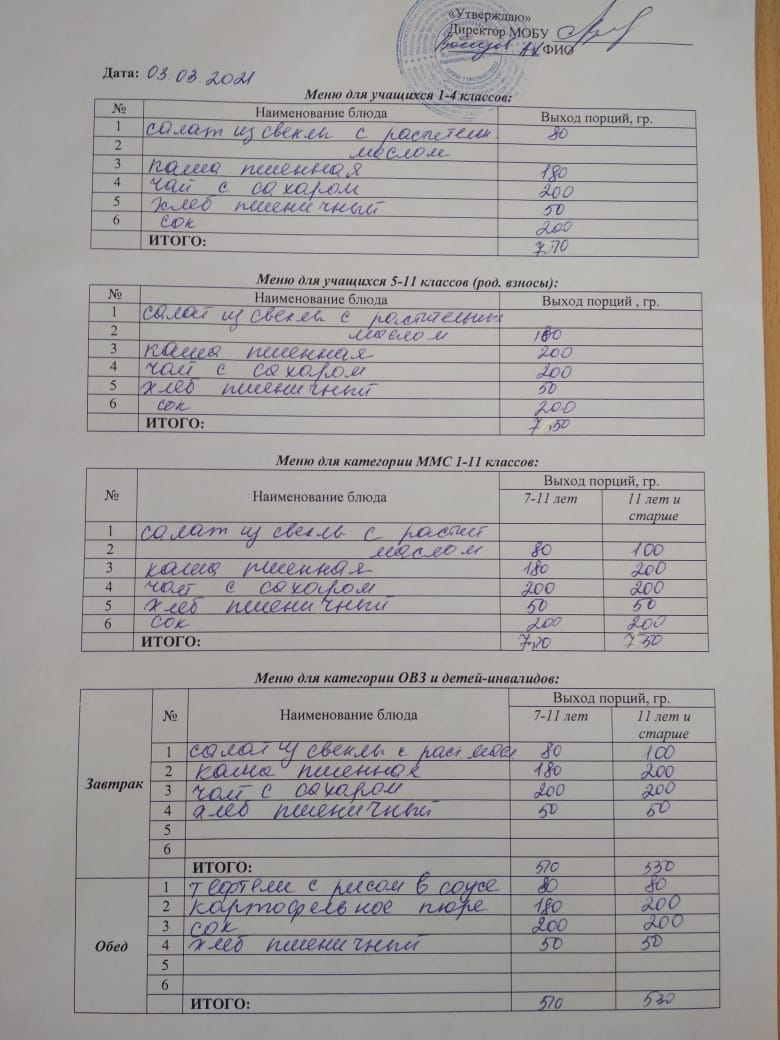 «Утверждаю»
Директор МОБУ
ФИО
Дата: 03.03.2021
Меню для учащихся 1-4 классов:
№ Наименование блюда Выход порций, гр.
1 салат из свеклы с растительн 80
2 маслом
3 каша пшенная 180
4 чай с сахаром 200
5 хлеб пшеничный 50
6 сок 200
ИТОГО:
Меню для учащихся 5-11 классов (род. взносы):
№ Наименование блюда Выход порций , гр.
1 салат из свеклы с растительным
2 маслом
3 каша пшенная 200
4 чай с сахаром 200
5 хлеб пшеничный 50
6 сок 200
ИТОГО:
Меню для категории ММС 1-11 классов:
Выход порций, гр.
№ Наименование блюда 7-11 лет 11 лет и
старше
1 салат из свеклы с растит
2 маслом 80 100
3 каша пшенная 180 200
4 чай с сахаром 200 200
5 хлеб пшеничный 50 50
6 сок 200 200
ИТОГО:
Меню для категории ОВЗ и детей-инвалидов:
Выход порций, гр.
№ Наименование блюда 7-11 лет 11 лет и
старше
Завтрак
1 салат из свеклы с раст масл 80 100
2 каша пшенная 180 200
3 чай с сахаром 200 200
4 хлеб пшеничный 50 50
5
6
ИТОГО: 510
Обед
1 тефтели с рисом в соусе 80 80
2 картофельное пюре 180 200
3 сок 200 200
4 хлеб пшеничный 50 50
5
6
ИТОГО: 510 530